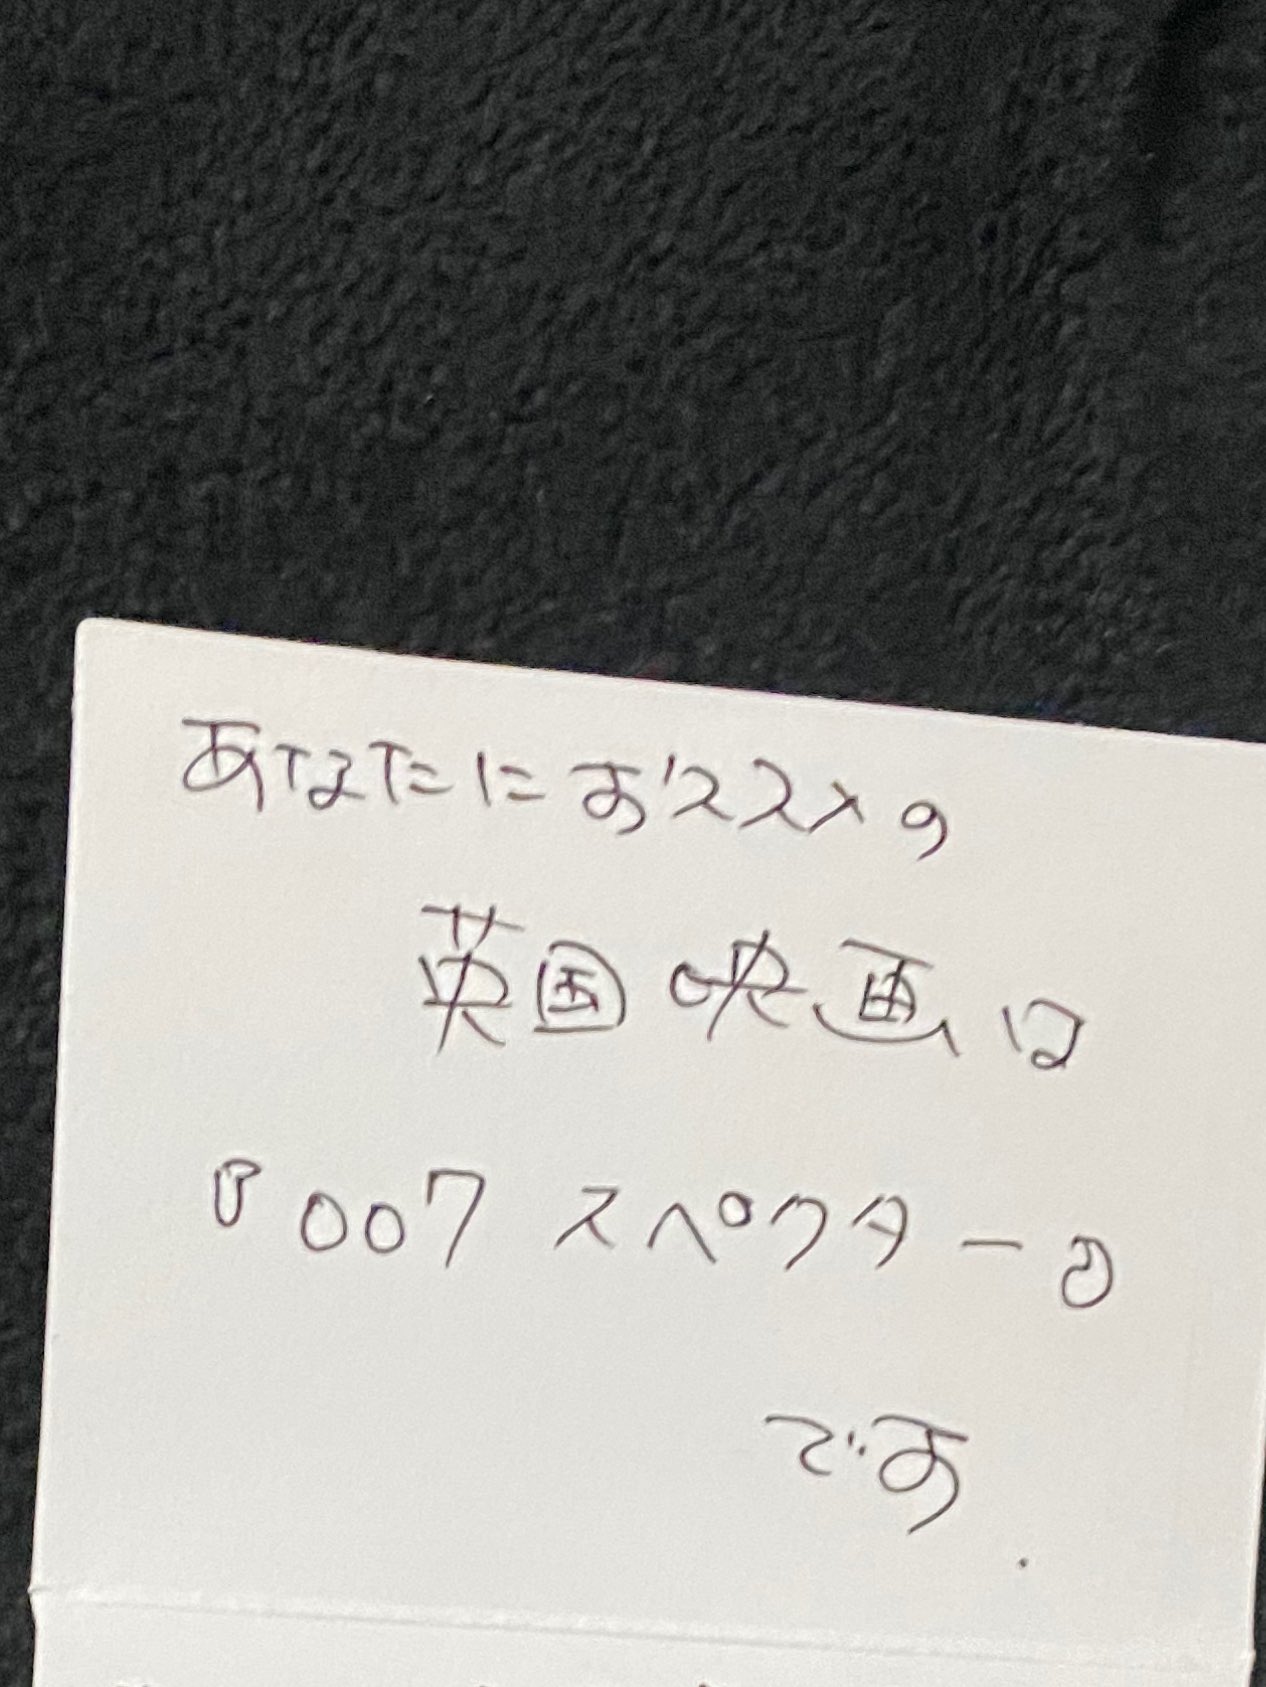 あなたにおススメの
英国映画は
『007 スペクター』
です.